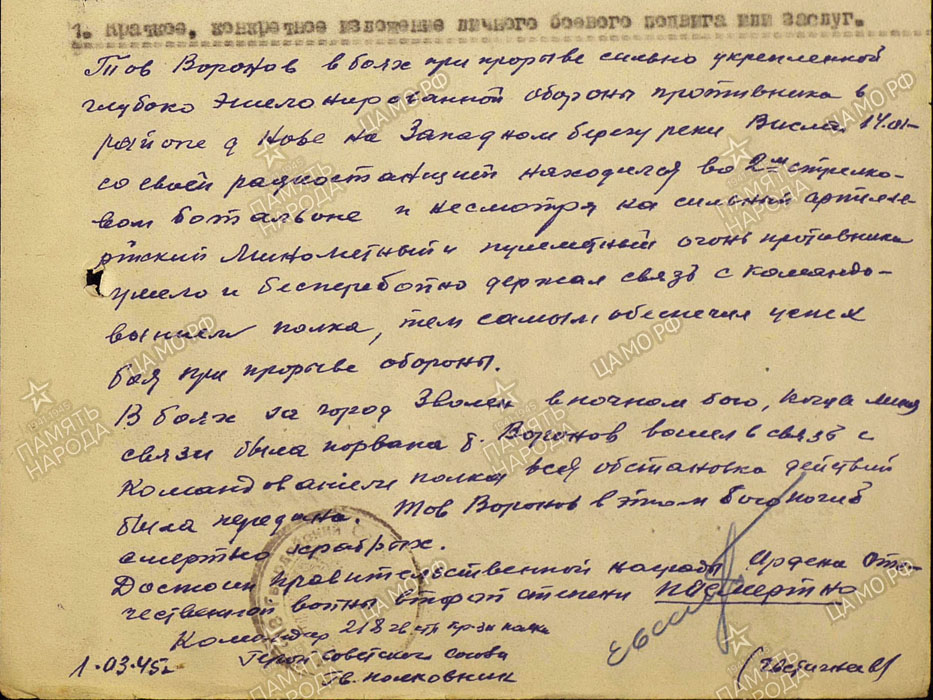 1. Краткое, конкретное изложение личного боевого подвига или заслуг.
Тов Воронов в боях при прорыве сильно укрепленной
глубоко эшелонированной обороны противника в
районе д Нове на Западном берегу реки Висла 14.01-
со своей радиостанцией находился во 2м стрелко-
вом батальоне и несмотря на сильный артилле-
рийский минометный и пулеметный огонь противника
умело и бесперебойно держал связь с командо-
ванием полка, тем самым обеспечил успех
боя при прорыве обороны.
В боях за город Зволен в ночном бою, когда линия
связи была порвана т. Воронов вошел в связь с
командованием полка вся обстановка действий
была передана. Тов Воронов в этом бою погиб
смертью храбрых.
Достоин правительственной награды Ордена Оте-
чественной войны второй степени посмертно
Командир 218 гв стр полка
Герой Советского союза
1.03.45г гв. полковник
ЦАМО.РФ
ПАМЯТЬ НАРОДА